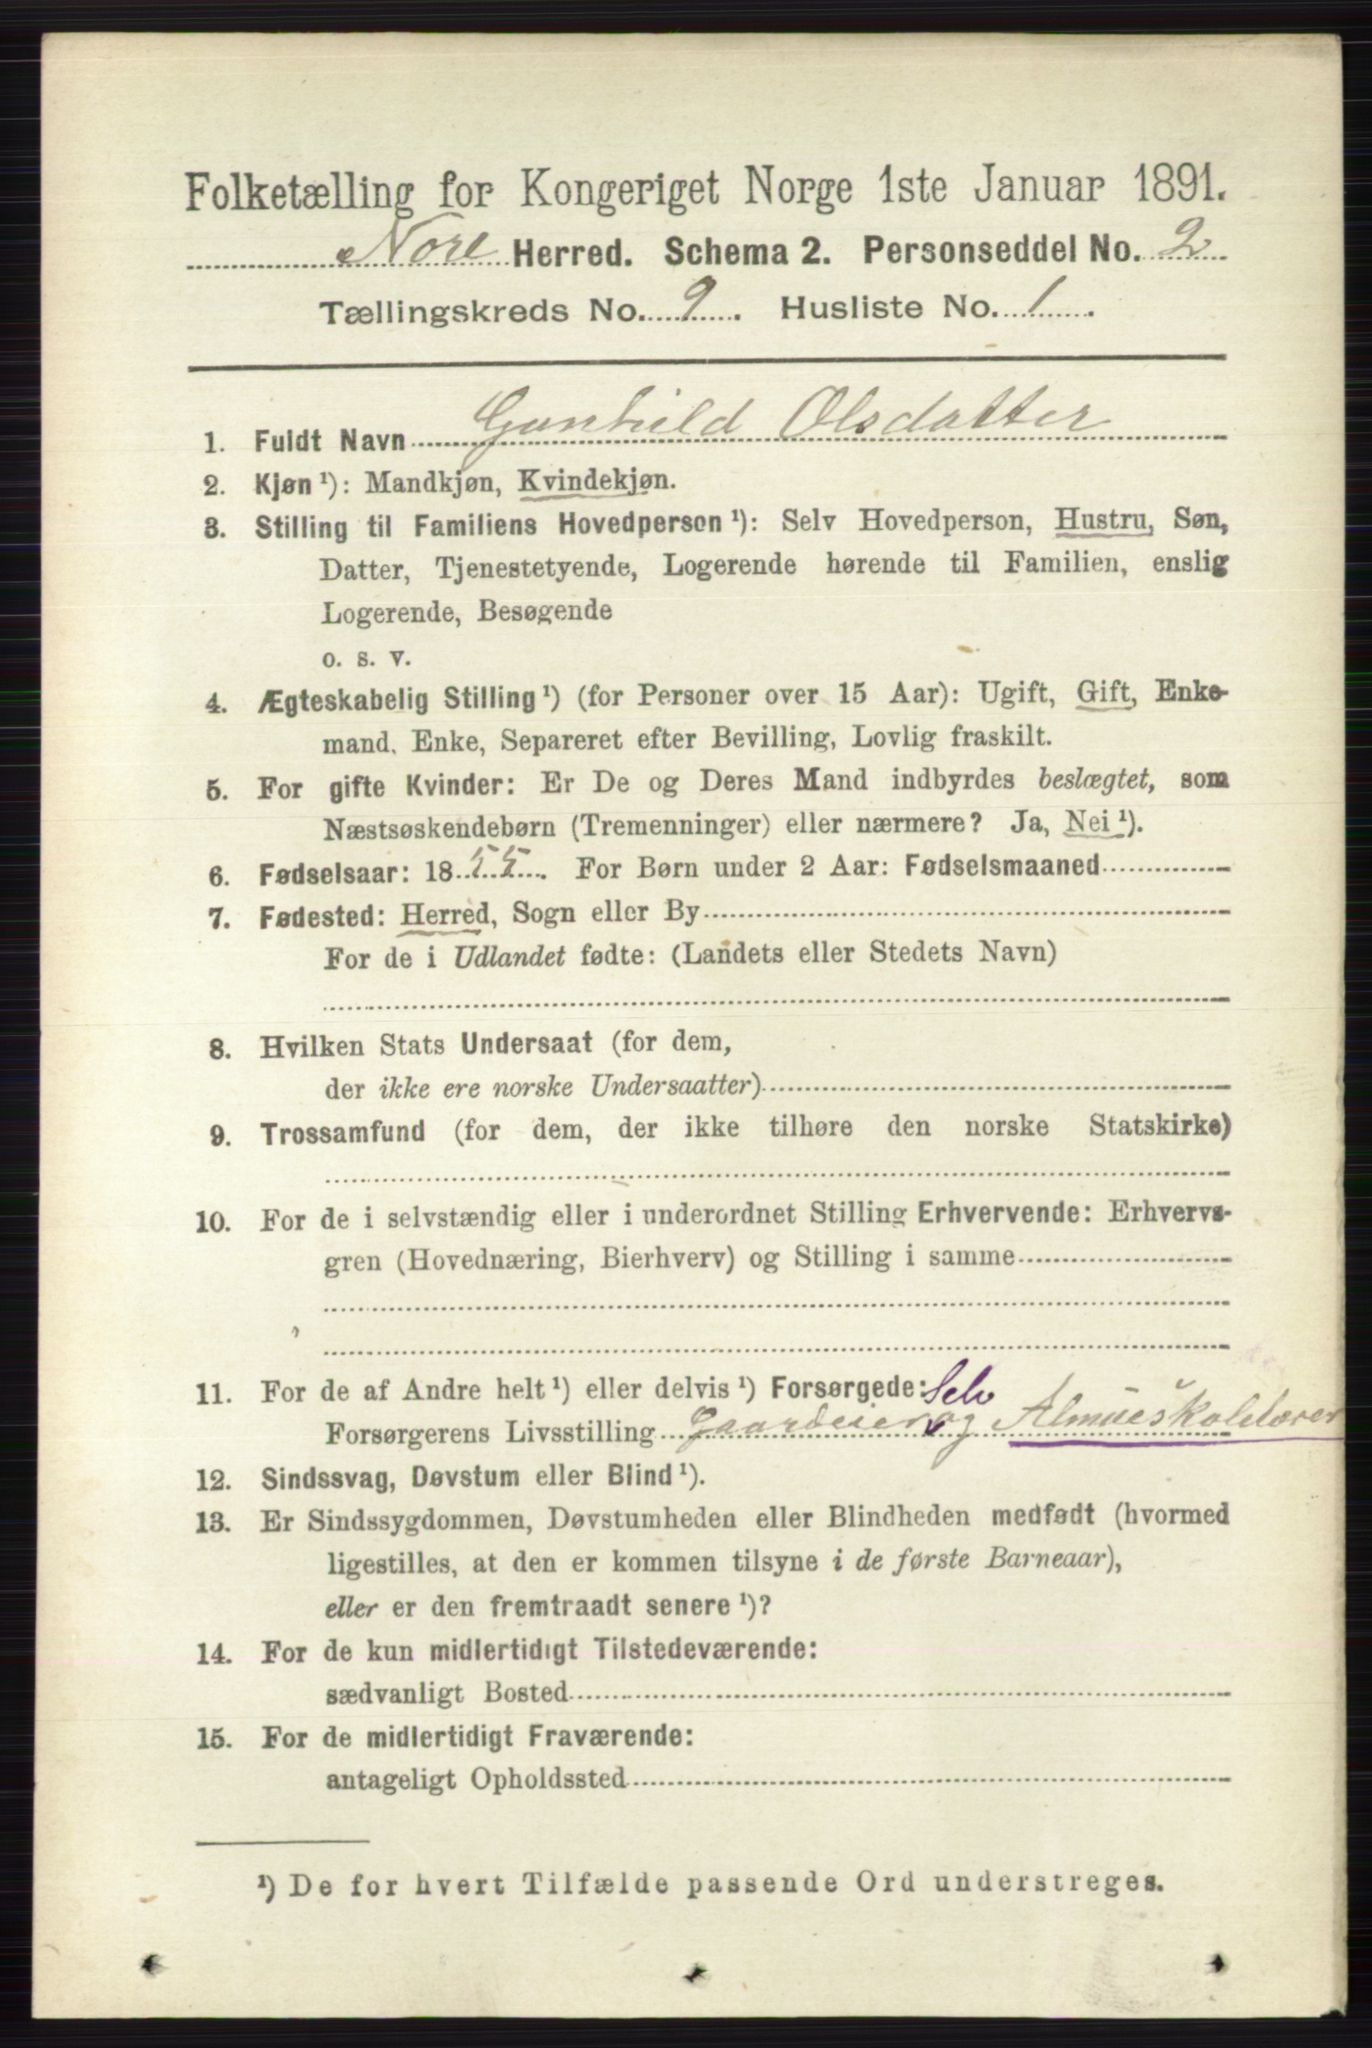 Folketælling for Kongeriget Norge 1ste Januar 1891.
Nore Herred. Schema 2. Personseddel No. 2
Tællingskreds No. 9. Husliste No. 1.
1. Fuldt Navn Gunhild Olsdatter
2. Kjøn ¹): Mandkjøn, Kvindekjøn.
3. Stilling til Familiens Hovedperson ¹): Selv Hovedperson, Hustru, Søn,
Datter, Tjenestetyende, Logerende hørende til Familien, enslig
Logerende, Besøgende
o. s. v.
4. Ægteskabelig Stilling ¹) (for Personer over 15 Aar): Ugift, Gift, Enke-
mand, Enke, Separeret efter Bevilling, Lovlig fraskilt.
5. For gifte Kvinder: Er De og Deres Mand indbyrdes beslægtet, som
Næstsøskendebørn (Tremenninger) eller nærmere? Ja, Nei ¹).
6. Fødselsaar: 1855. For Børn under 2 Aar: Fødselsmaaned
7. Fødested: Herred, Sogn eller By
For de i Udlandet fødte: (Landets eller Stedets Navn)
8. Hvilken Stats Undersaat (for dem,
der ikke ere norske Undersaatter)
9. Trossamfund (for dem, der ikke tilhøre den norske Statskirke)
10. For de i selvstændig eller i underordnet Stilling Erhvervende: Erhvervs-
gren (Hovednæring, Bierhverv) og Stilling i samme
11. For de af Andre helt ¹) eller delvis ¹) Forsørgede: Selv
Forsørgerens Livsstilling Gaardeier og Almueskolelærer
12. Sindssvag, Døvstum eller Blind ¹).
13. Er Sindssygdommen, Døvstumheden eller Blindheden medfødt (hvormed
ligestilles, at den er kommen tilsyne i de første Barneaar),
eller er den fremtraadt senere ¹)?
14. For de kun midlertidigt Tilstedeværende:
sædvanligt Bosted
15. For de midlertidigt Fraværende:
antageligt Opholdssted
¹) De for hvert Tilfælde passende Ord understreges.